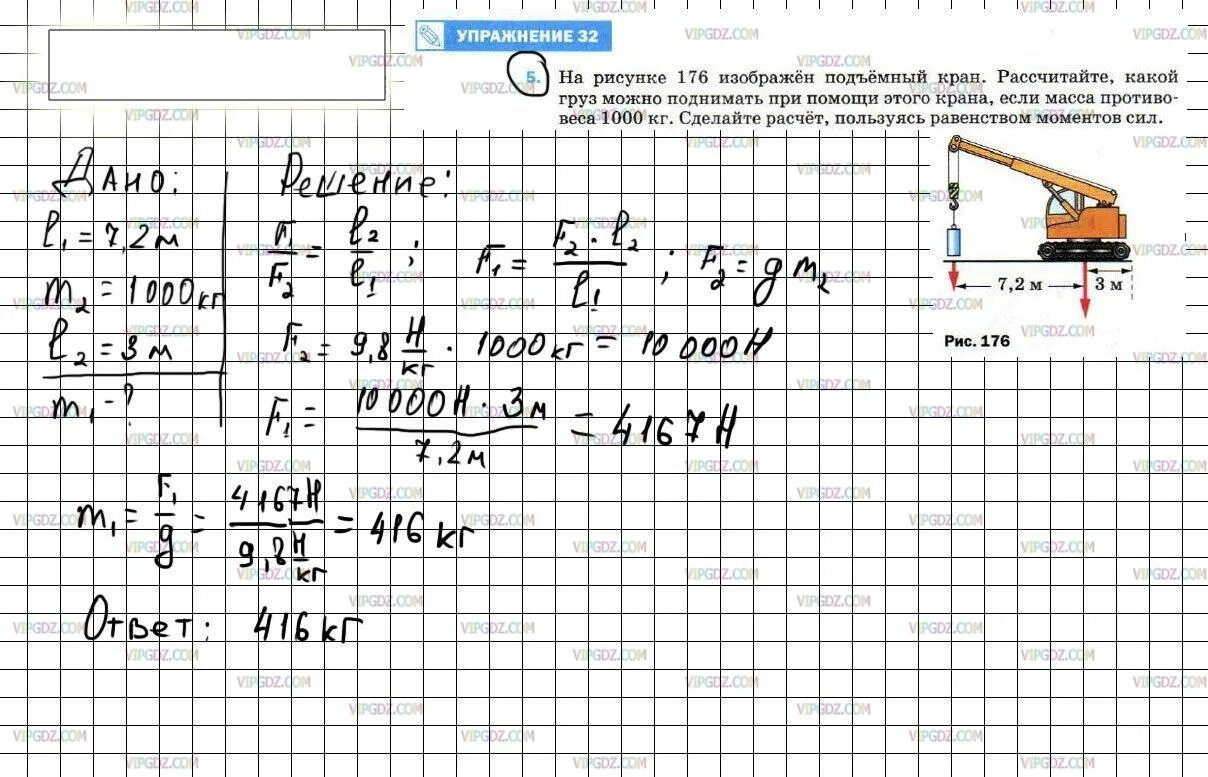 УПРАЖНЕНИЕ 32
5. На рисунке 176 изображён подъёмный кран. Рассчитайте, какой
груз можно поднимать при помощи этого крана, если масса противо-
веса 1000 кг. Сделайте расчёт, пользуясь равенством моментов сил.
7,2 м
3 м
Рис. 176
Дано:
l₁ = 7,2 м
m₂ = 1000 кг
l₂ = 3 м
m₁ - ?
Решение:
F₁/F₂ = l₂/l₁ ; F₁ = F₂ · l₂/l₁ ; F₂ = g m₂
F₂ = 9,8 Н/кг · 1000 кг = 10 000 Н
F₁ = 10 000 Н · 3 м/7,2 м = 4167 Н
m₁ = F₁/g = 4167 Н/9,8 Н/кг = 416 кг
Ответ: 416 кг
VIPGDZ.COM